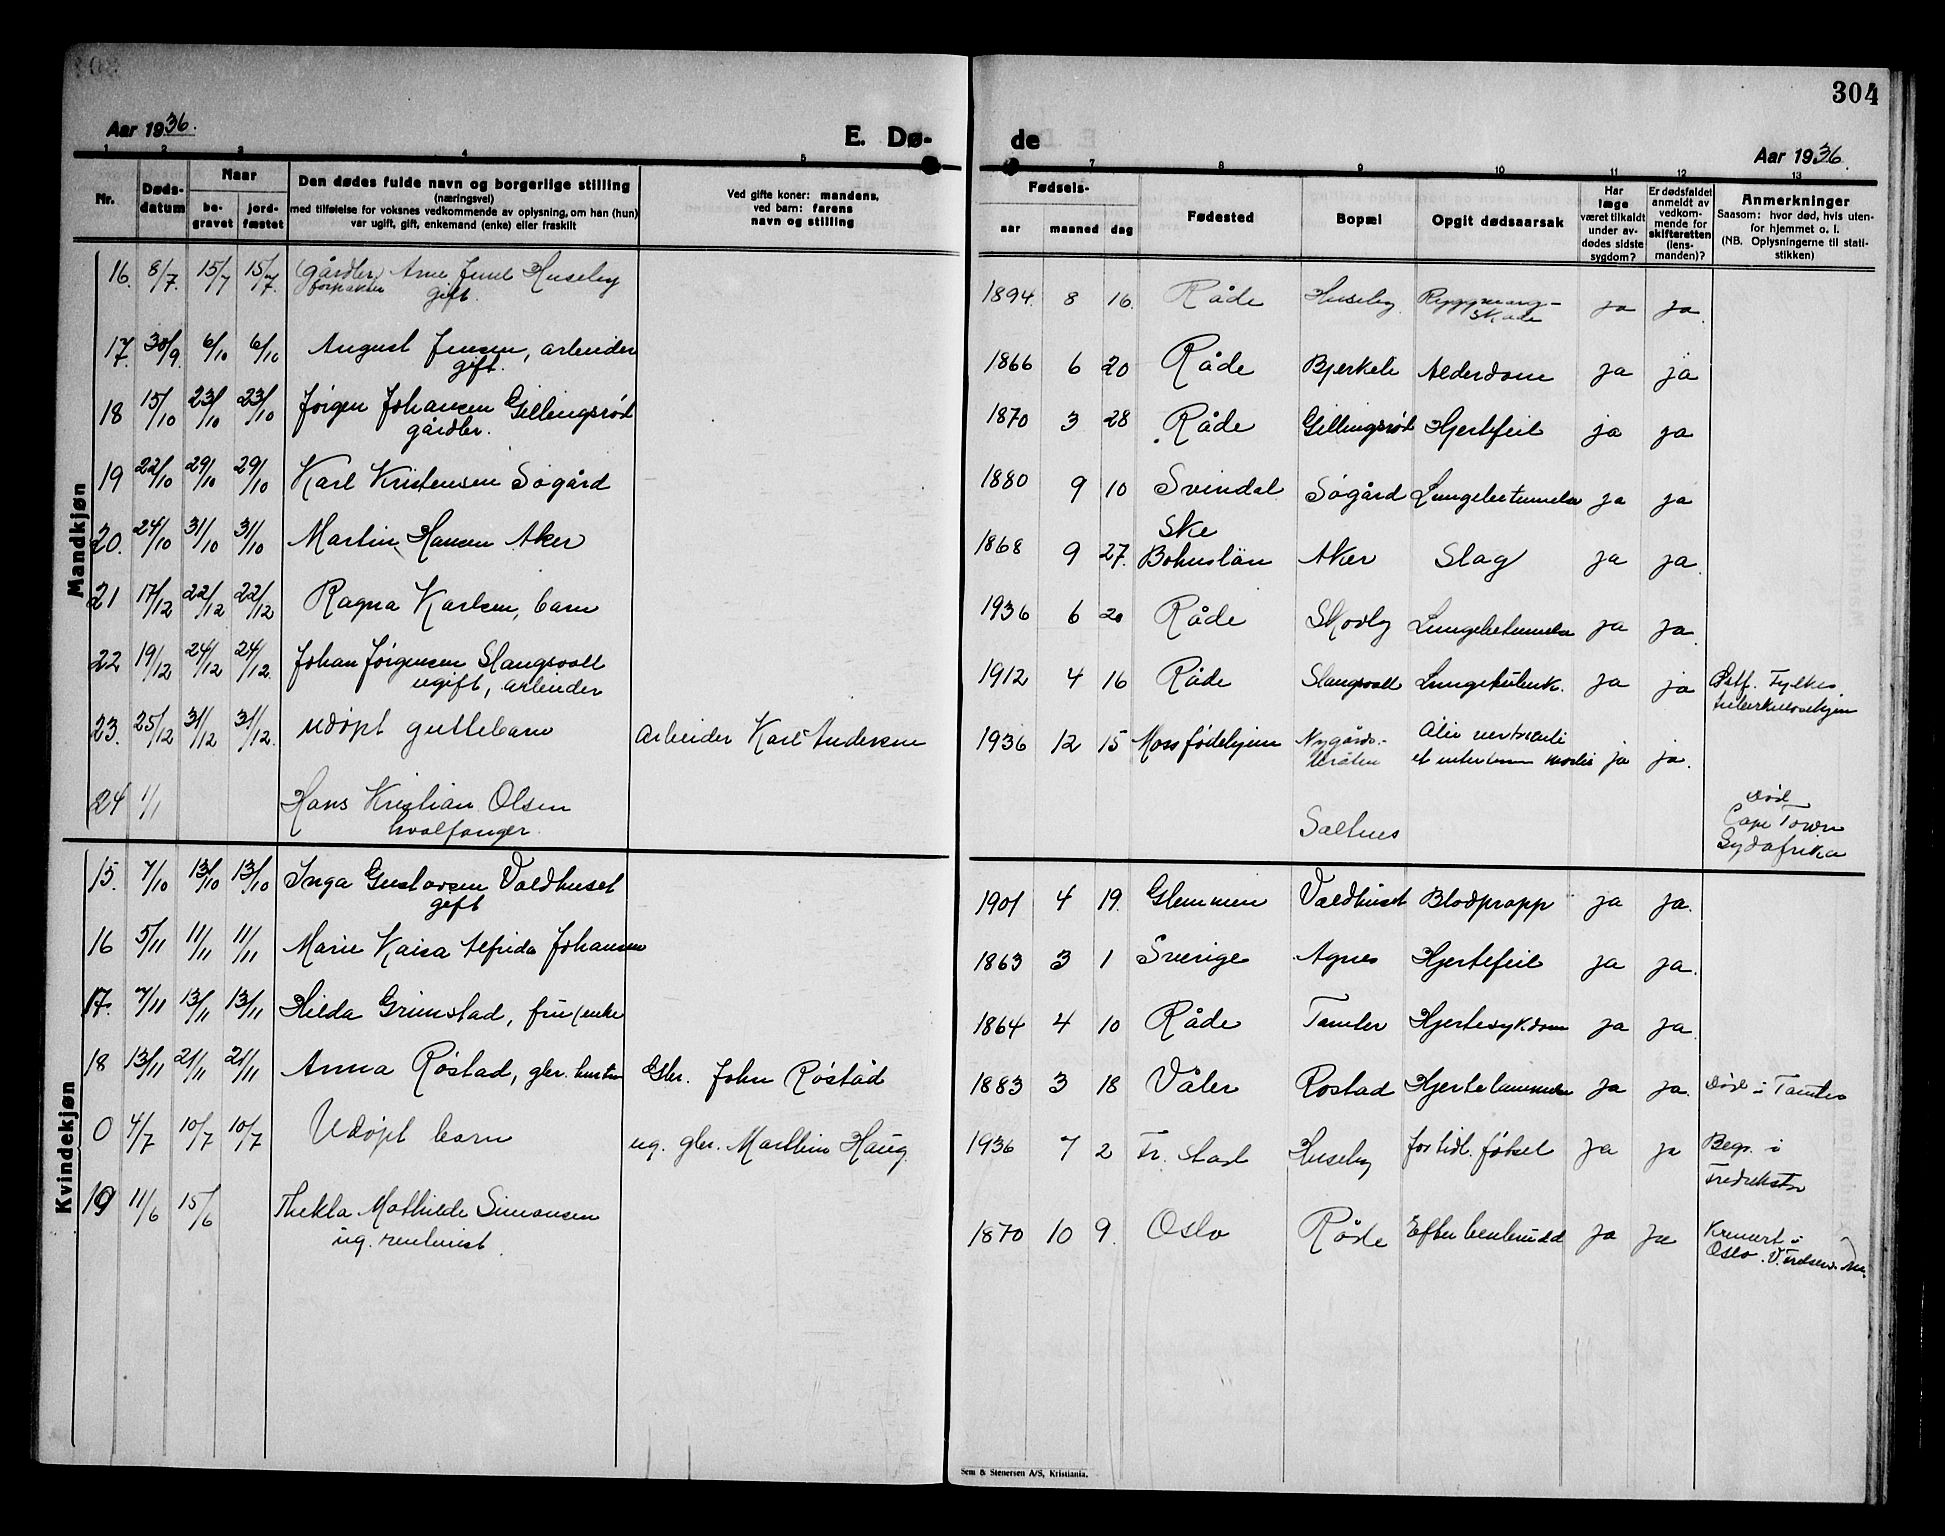 304
Aar 1936.
E. Dø-
de
Aar 1936.
1 2 3 4 5 7 8 9 10 11 12 13
Nr.
Døds-
datum
Naar
be-
gravet
jord-
fæstet
Den dødes fulde navn og borgerlige stilling
(næringsvei)
med tilføielse for voksnes vedkommende av oplysning, om han (hun)
var ugift, gift, enkemand (enke) eller fraskilt
Ved gifte koner: mandens,
ved barn: farens
navn og stilling
Fødsels-
aar maaned dag
Fødested
Bopæl
Opgit dødsaarsak
Har
læge
været tilkaldt
under av-
dødes sidste
sygdom?
Er dødsfaldet
anmeldt av
vedkom-
mende for
skifteretten
(lens-
manden)?
Anmerkninger
Saasom: hvor død, hvis uten-
for hjemmet o. l.
(NB. Oplysningerne til stati-
stikken)
Mandkjøn
16. 8/7. 15/7 15/7. (gårdbr.) Arne Juul Huseby 1894 8 16. Råde Huseby Ryggmarg- ja ja.
forpakter gift. skade
17. 30/9. 6/10 6/10 August Jensen, arbeider 1866 6 20 Råde Bjerkeli Alderdom ja ja
gift.
18 15/10 23/10 23/10 Jørgen Johansen Gillingsrød 1870 3 28 Råde Gillingsrød Hjertefeil ja ja
gårdbr.
19 22/10 29/10 29/10 Karl Kristensen Søgård 1880 9 10 Svindal Søgård Lungebetennelse ja ja
20. 24/10 31/10 31/10 Martin Hansen Aker 1868 9 27. Ske Bohuslän Aker Slag ja ja.
21 17/12 22/12 22/12 Ragna Karlsen, barn 1936 6 20 Råde Skovby Lungebetennelse ja ja.
22 19/12 24/12 24/12. Johan Jørgensen Slangsvoll 1912 4 16 Råde Slangsvoll Lungetuberk. ja ja Østf. Fylkes
ugift, arbeider tuberkulosehjem
23. 25/12 31/12 31/12. udøpt guttebarn Arbeider Karl Andersen 1936 12 15 Moss fødehjem Nygårds- ja ja.
bråten
24 1/1 Hans Kristian Olsen Saltnes Død
hvalfanger. Cape Town
Sydafrika
Kvindekjøn
15. 7/10 13/10 13/10 Inga Gustavsen Valdhuset 1901 4 19. Glemmen Valdhuset Blodpropp ja ja.
gift
16 5/11 11/11 11/11 Marie Kaisa Alfrida Johansen 1863 3 1 Sverige Agnes Hjertefeil ja ja.
17. 7/11 13/11 13/11 Hilda Grimstad, fru (enke 1864 4 10 Råde Tomter Hjertesykdom ja ja.
18 13/11 21/11 21/11 Anna Røstad, gbr. hustru Gbr. John Røstad 1883 3 18 Våler Rostad Hjertelammelse ja ja. Død i Tomter
0 4/7 10/7 10/7 Udøpt barn ug. gbr. Marthin Haug. 1936 7 2 Fr. stad Huseby for tidl. fødsel ja ja Begr. i
Fredrikstad
19 11/6 15/6 Thekla Mathilde Simonsen 1870 10 9. Oslo Råde Efter benbrudd ja ja Kremert i
ug. rentenist. Oslo.
Sem & Stenersen A/S, Kristiania.